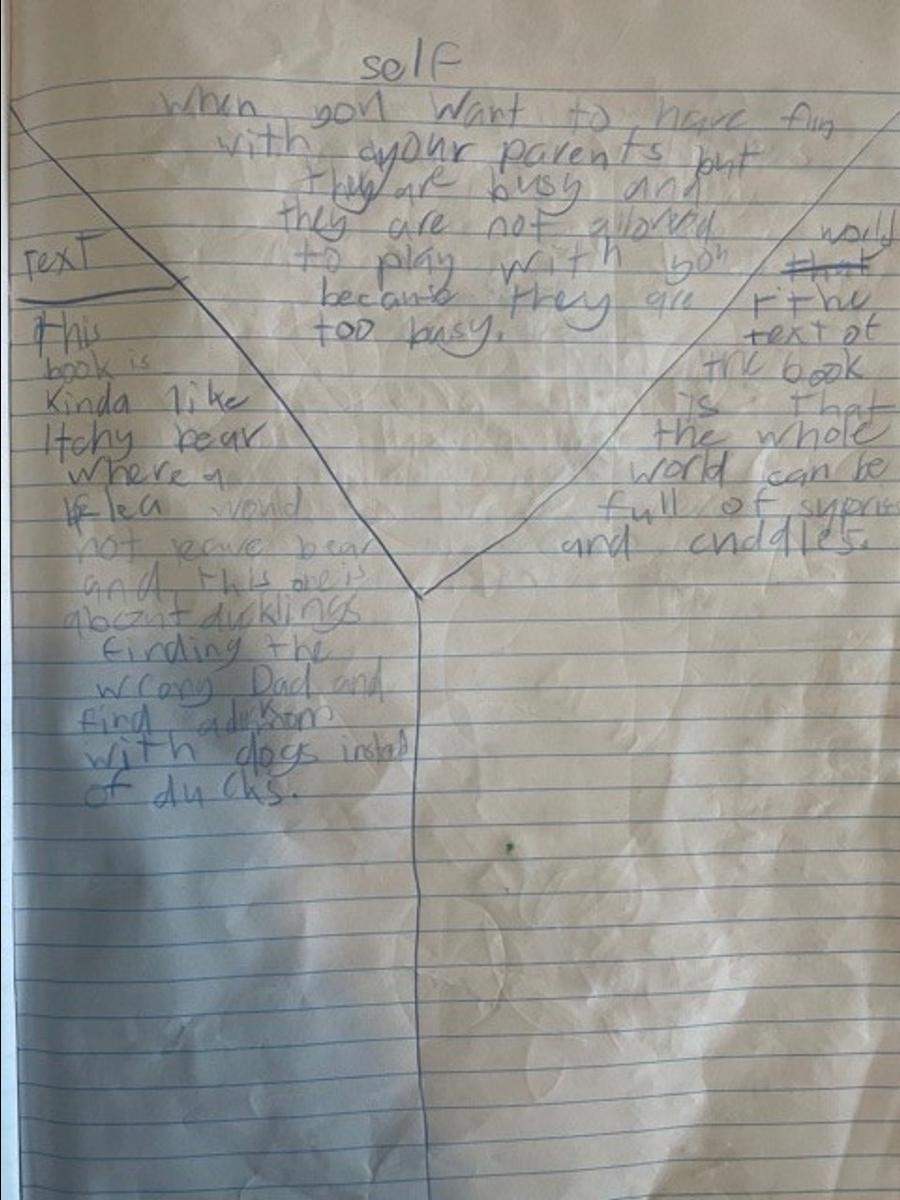 self
When you want to have fun
with your parents but
they are busy and
they are not allowed
to play with you
because they are
too busy.
Text
This
book is
Kinda like
Itchy bear
where a
flea would
not leave bear
and this one is
about ducklings
finding the
wrong Dad and
find
with dogs insted
of ducks.
world
the
text of
the book
is that
the whole
world can be
full of supris
and cuddles.